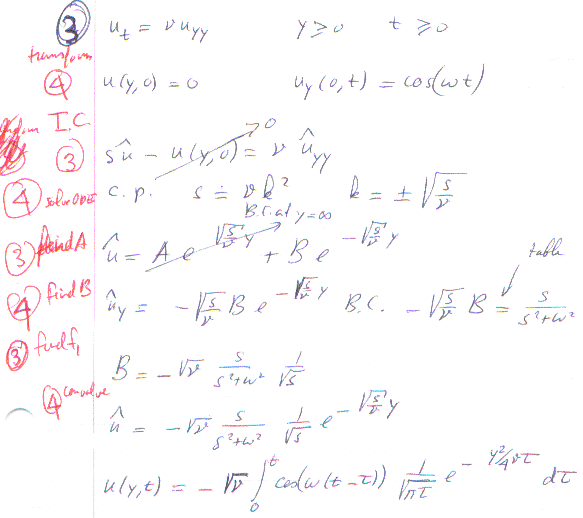 ③ u_t = ν u_yy   y ≥ 0   t ≥ 0
transform
④ u(y,0) = 0   u_y(0,t) = cos(ωt)
I.C.
③ sû − u(y,0) = ν û_yy   0
④ solve ODE c.p. s = νk²   k = ± √(s/ν)
B.C. at y=∞
③ find A û = A e^{√(s/ν) y} + B e^{−√(s/ν) y}   table
④ find B û_y = −√(s/ν) B e^{−√(s/ν) y}   B.C. −√(s/ν) B = s/(s²+ω²)
③ find f₁
B = −√ν s/(s²+ω²) 1/√s
④ convolve
û = −√ν s/(s²+ω²) 1/√s e^{−√(s/ν) y}
u(y,t) = −√ν ∫₀ᵗ cos(ω(t−τ)) 1/√(πτ) e^{−y²/4ντ} dτ